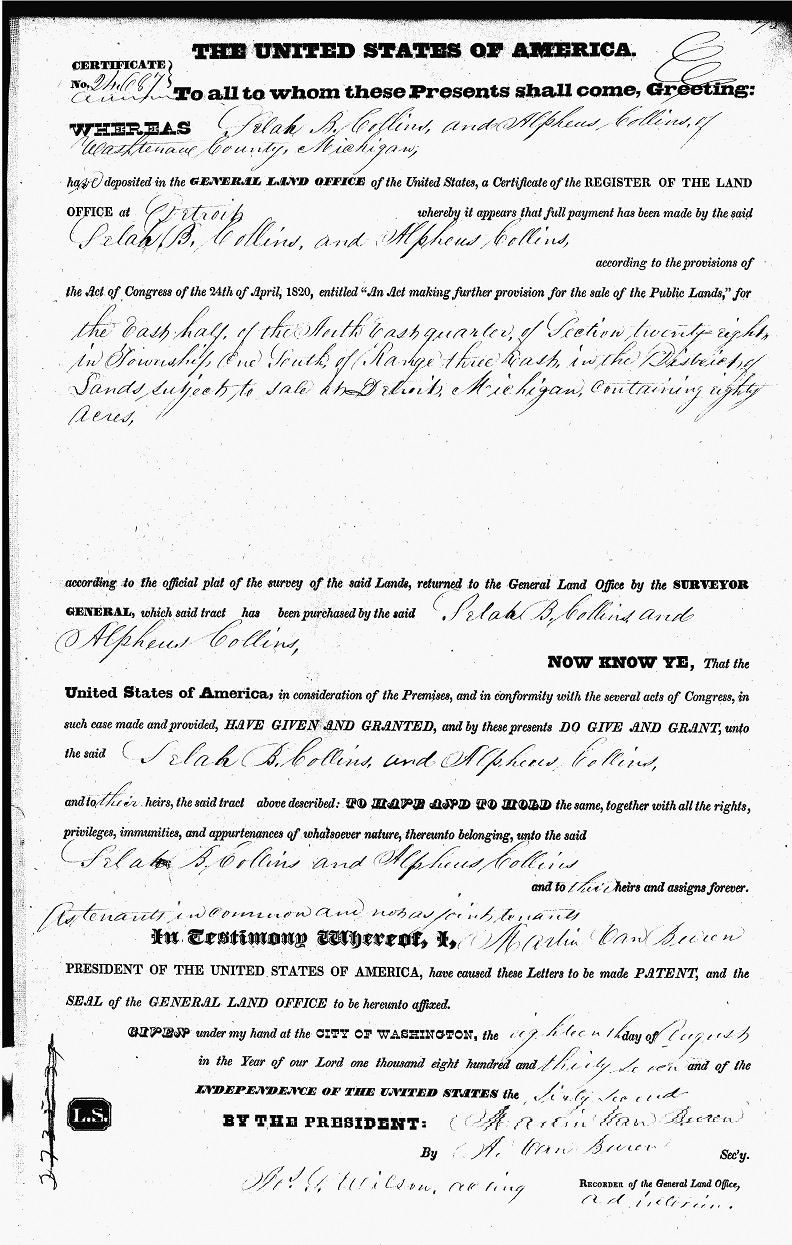 THE UNITED STATES OF AMERICA.
CERTIFICATE
No. 24,687
To all to whom these Presents shall come, Greeting:
WHEREAS Selah B. Collins, and Alpheus Collins, of
Washtenaw County, Michigan,
have deposited in the GENERAL LAND OFFICE of the United States, a Certificate of the REGISTER OF THE LAND
OFFICE at Detroit whereby it appears that full payment has been made by the said
Selah B. Collins, and Alpheus Collins,
according to the provisions of
the Act of Congress of the 24th of April, 1820, entitled "An Act making further provision for the sale of the Public Lands," for
the East half, of the North East quarter, of Section twenty eight,
in Township One South, of Range three East, in the District of
Lands subject to sale at Detroit, Michigan, containing eighty
acres,
according to the official plat of the survey of the said Lands, returned to the General Land Office by the SURVEYOR
GENERAL, which said tract has been purchased by the said Selah B. Collins and
Alpheus Collins,
NOW KNOW YE, That the
United States of America, in consideration of the Premises, and in conformity with the several acts of Congress, in
such case made and provided, HAVE GIVEN AND GRANTED, and by these presents DO GIVE AND GRANT, unto
the said Selah B. Collins, and Alpheus Collins,
and to their heirs, the said tract above described: TO HAVE AND TO HOLD the same, together with all the rights,
privileges, immunities, and appurtenances of whatsoever nature, thereunto belonging, unto the said
Selah B. Collins and Alpheus Collins
and to their heirs and assigns forever.
As tenants in common and not as joint tenants
In Testimony Whereof, I, Martin Van Buren
PRESIDENT OF THE UNITED STATES OF AMERICA, have caused these Letters to be made PATENT, and the
SEAL of the GENERAL LAND OFFICE to be hereunto affixed.
GIVEN under my hand at the CITY OF WASHINGTON, the eighteenth day of August
in the Year of our Lord one thousand eight hundred and thirty seven and of the
INDEPENDENCE OF THE UNITED STATES the sixty second
L.S.
BY THE PRESIDENT: Martin Van Buren
By A. Van Buren Sec'y.
Jos. S. Wilson, acting RECORDER of the General Land Office,
ad interim.